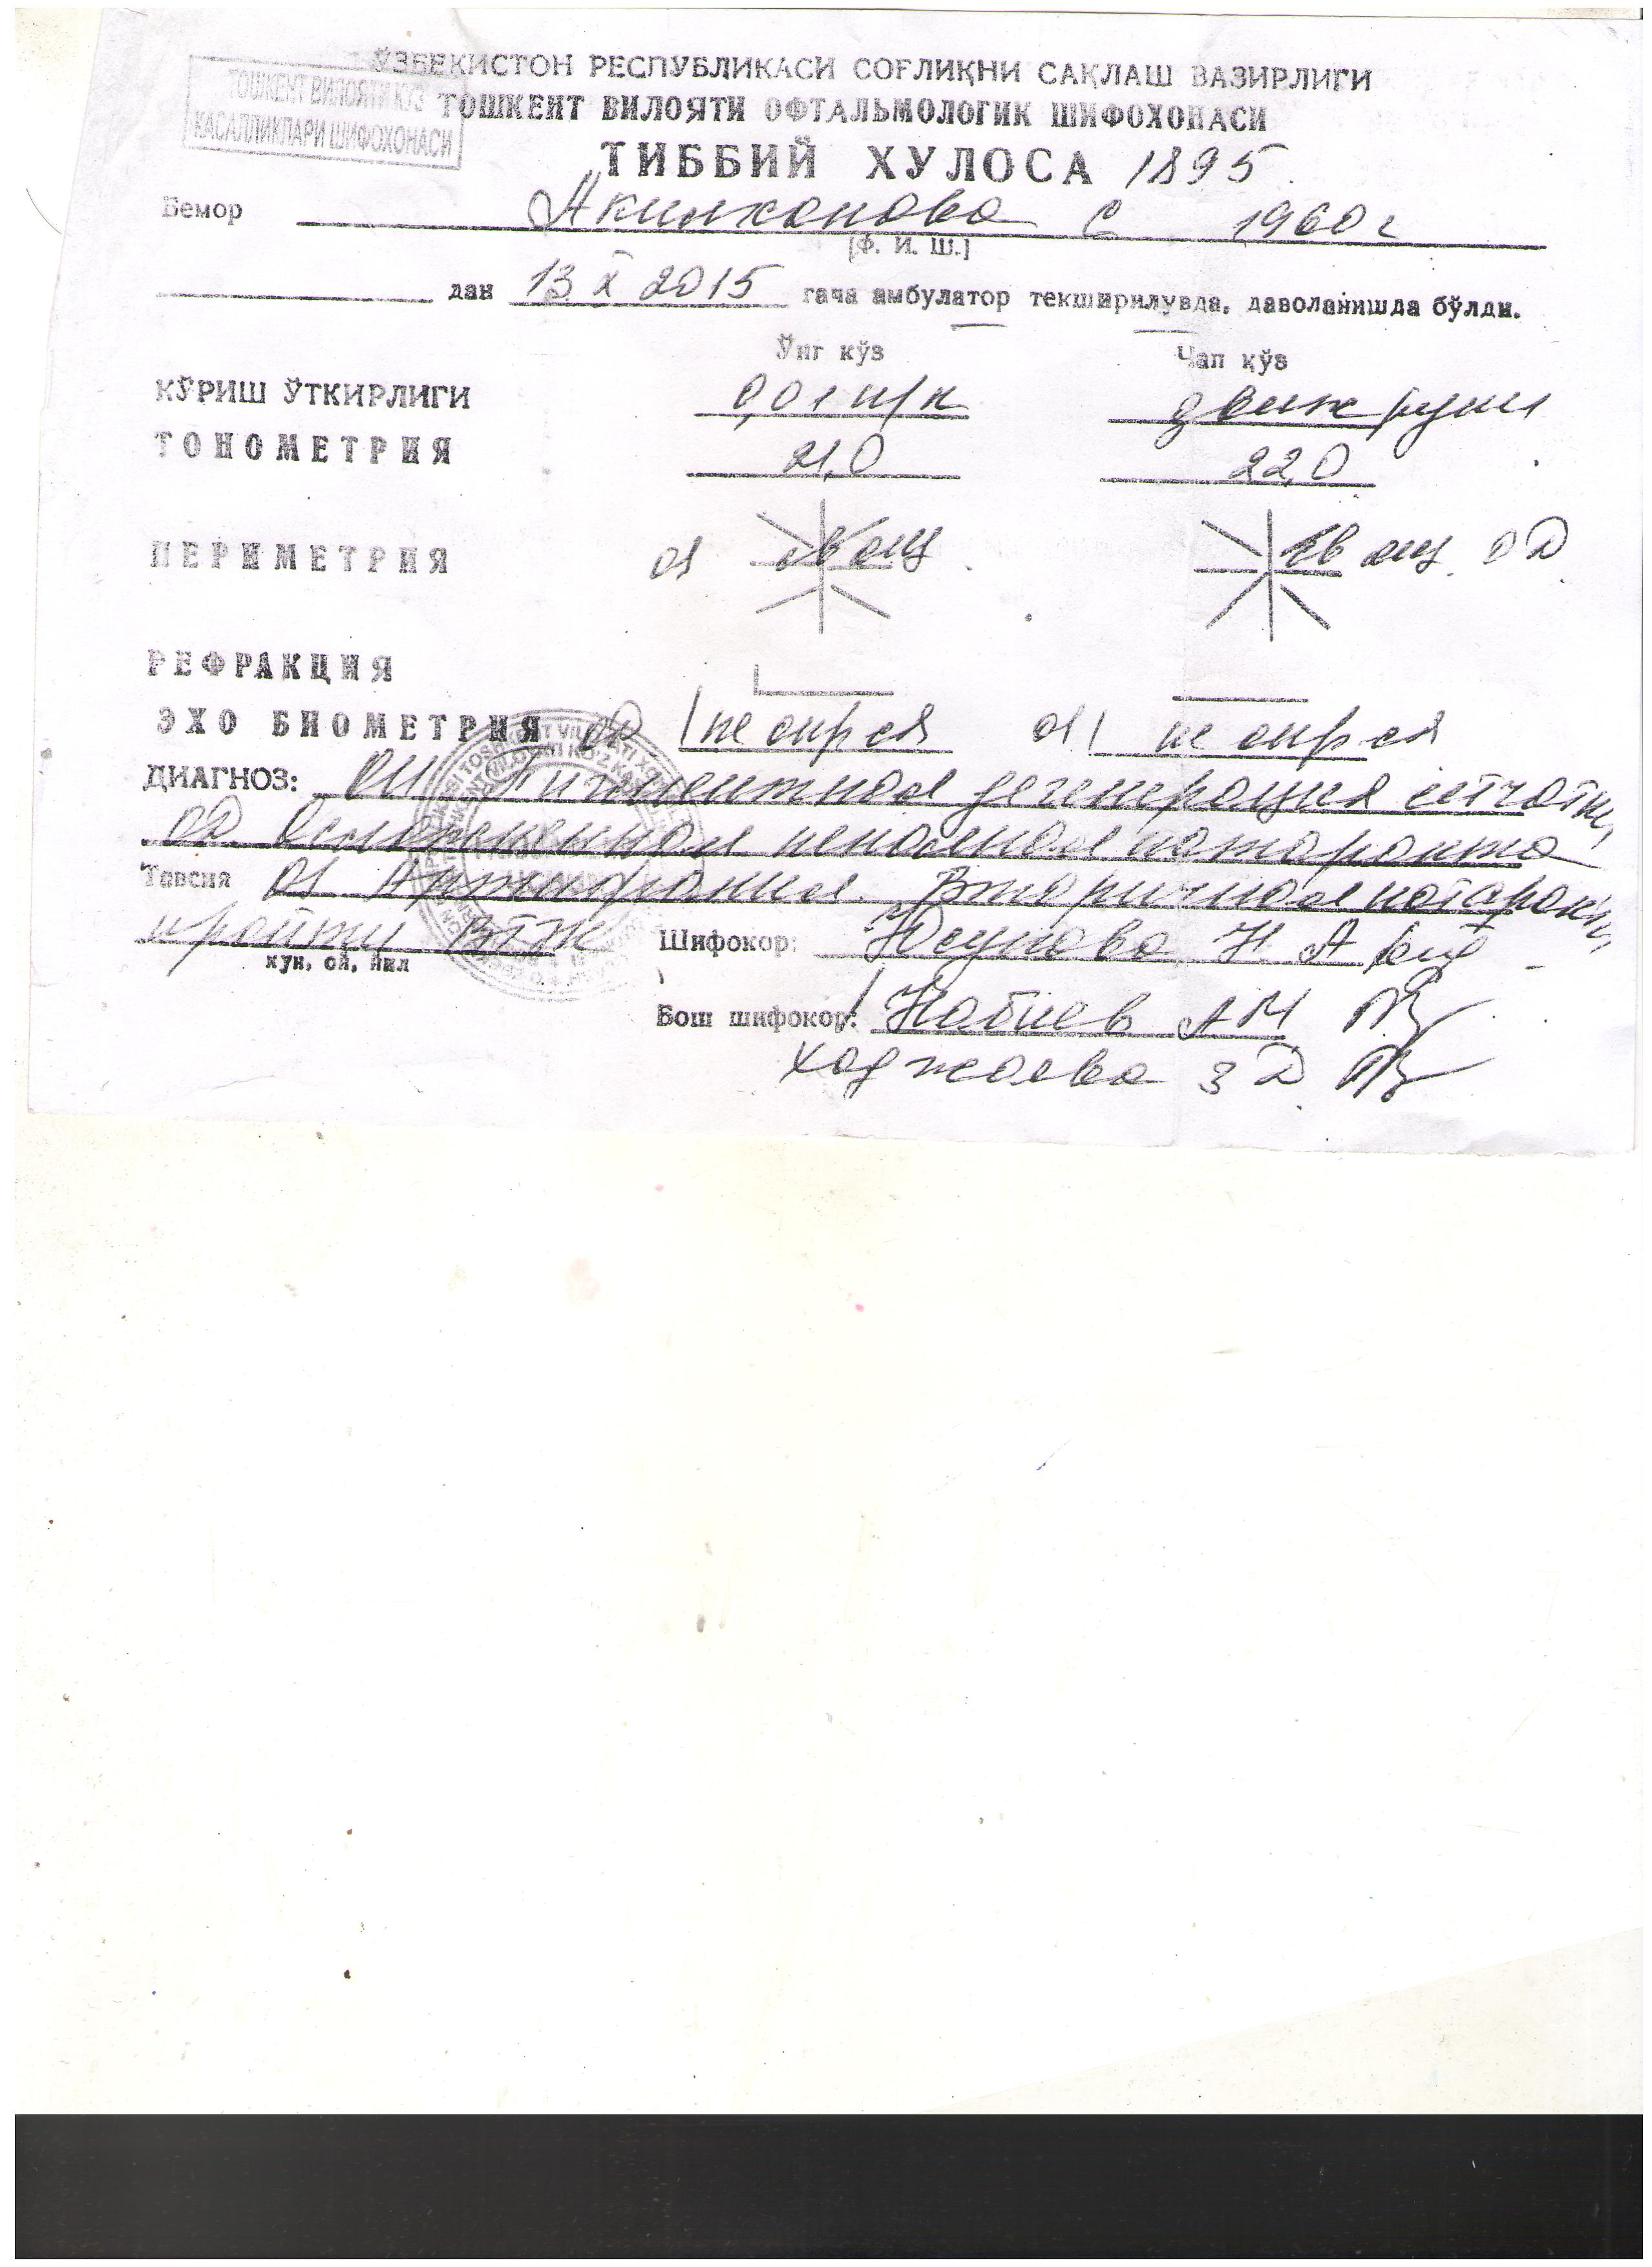 ЎЗБЕКИСТОН РЕСПУБЛИКАСИ СОҒЛИҚНИ САҚЛАШ ВАЗИРЛИГИ
ТОШКЕНТ ВИЛОЯТИ КЎЗ
КАСАЛЛИКЛАРИ ШИФОХОНАСИ
ТОШКЕНТ ВИЛОЯТИ ОФТАЛЬМОЛОГИК ШИФОХОНАСИ
ТИББИЙ ХУЛОСА 1895
Бемор Акилханова С 1960 г
[Ф. И. Ш.]
дан 13 X 2015 гача амбулатор текширилувда, даволанишда бўлди.
Ўнг кўз Чап кўз
КЎРИШ ЎТКИРЛИГИ 0,01 н/к движ руки
ТОНОМЕТРИЯ 21,0 22,0
ПЕРИМЕТРИЯ OS OD
РЕФРАКЦИЯ
ЭХО БИОМЕТРИЯ OD не опр ся OS не опр ся
ДИАГНОЗ: OU Пигментная дегенерация сетчатки
OD Осложненная неполная катаракта
Тавсия OS Артифакия. Вторичная катаракта
пройти ВТЭК Шифокор: Юсупова Н. А
кун, ой, йил
Бош шифокор: Набиев АМ
Ходжаева З Д